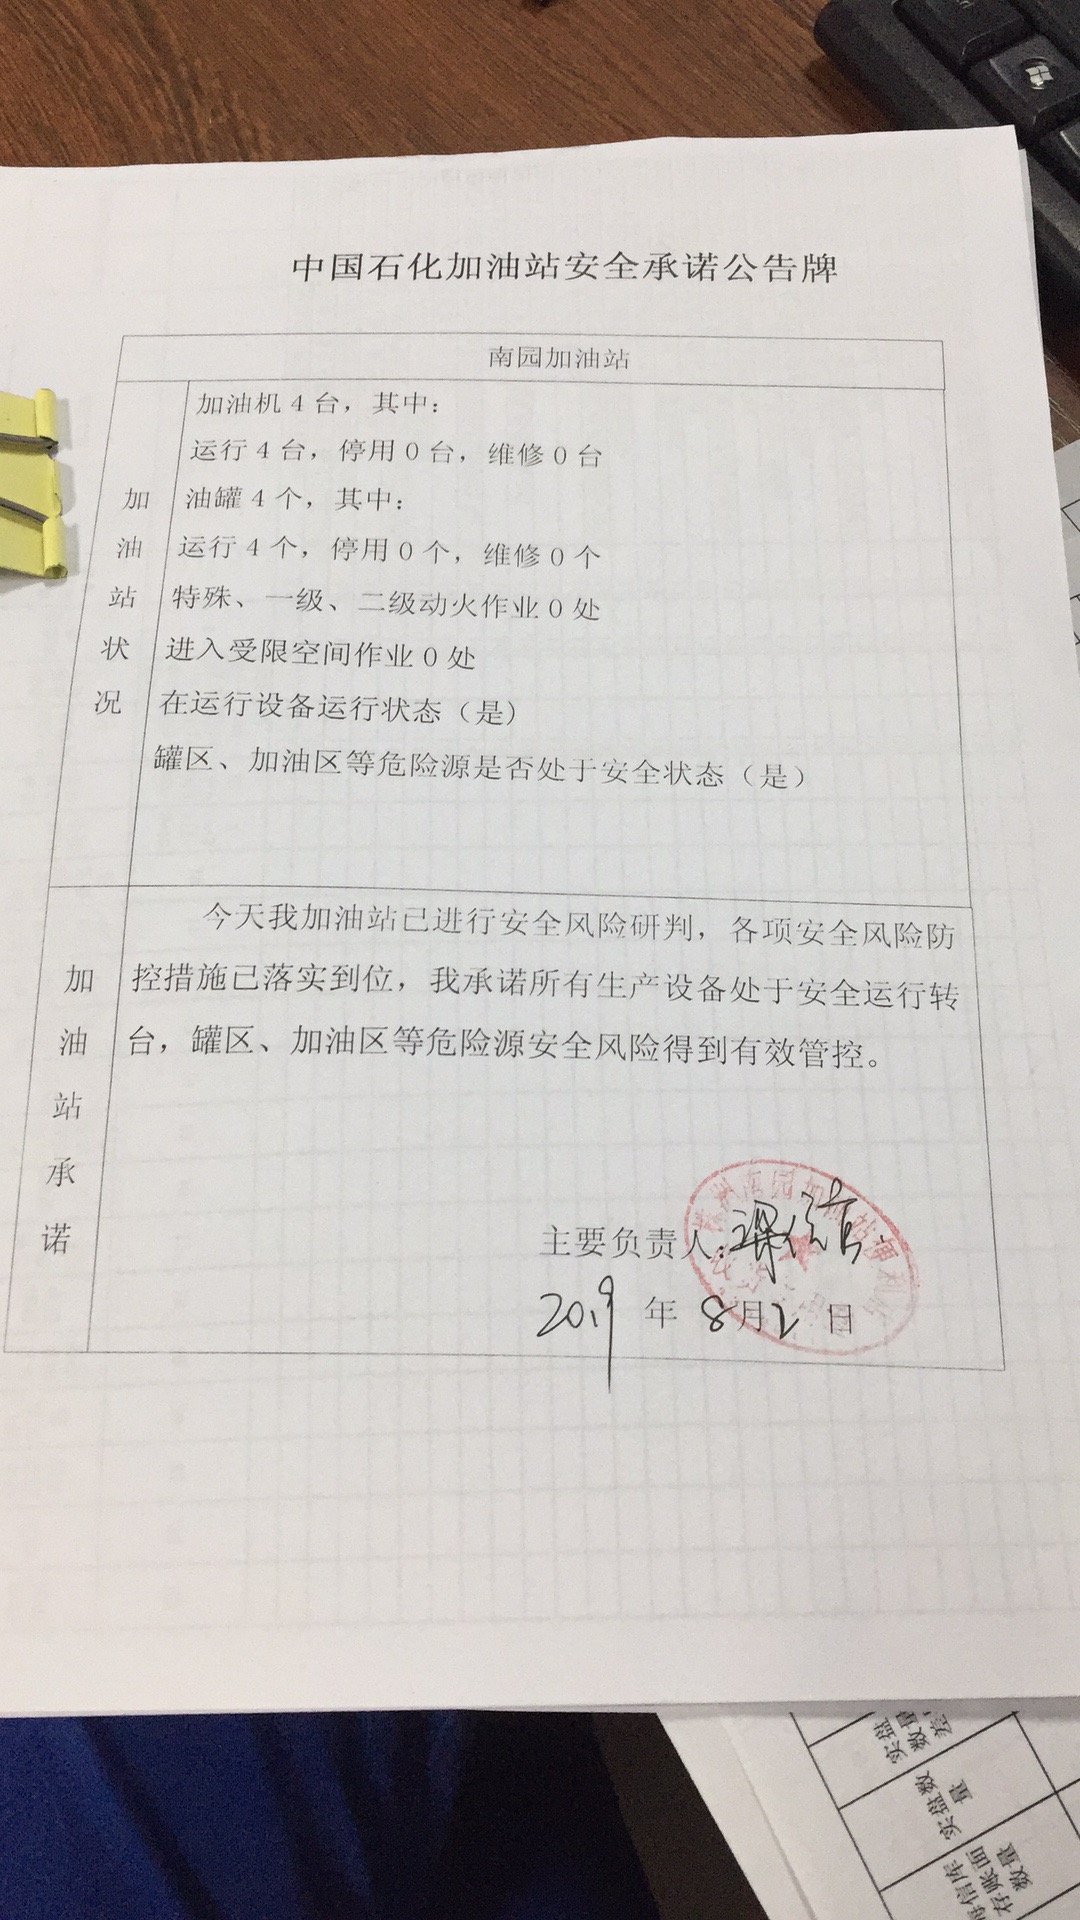 中国石化加油站安全承诺公告牌
南园加油站
加油站状况
加油机4台，其中：
运行4台，停用0台，维修0台
油罐4个，其中：
运行4个，停用0个，维修0个
特殊、一级、二级动火作业0处
进入受限空间作业0处
在运行设备运行状态（是）
罐区、加油区等危险源是否处于安全状态（是）
加油站承诺
今天我加油站已进行安全风险研判，各项安全风险防
控措施已落实到位，我承诺所有生产设备处于安全运行转
台，罐区、加油区等危险源安全风险得到有效管控。
主要负责人：
2019年8月2日
实盘数量
存账面数量